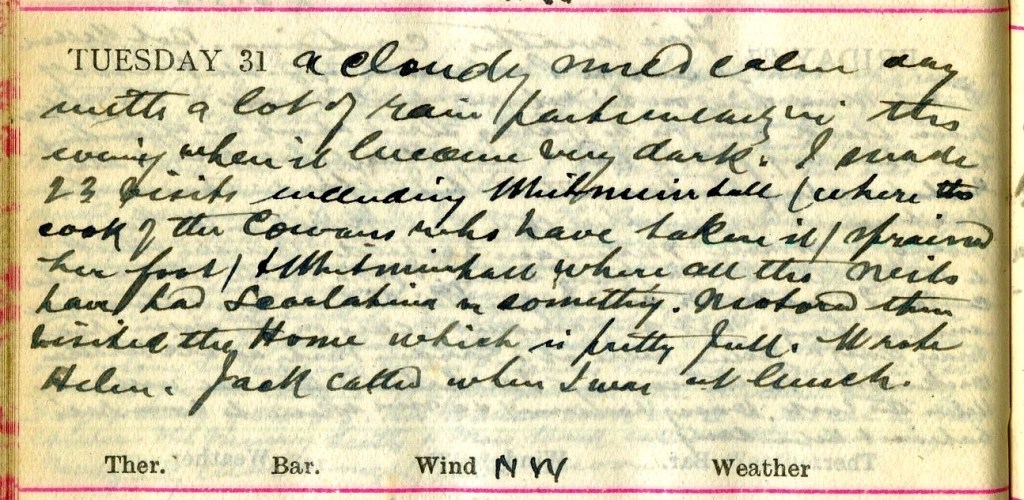 TUESDAY 31 A cloudy mild calm day
with a lot of rain particularly in the
evening when it became very dark. I made
23 visits including Whitmuirhall (where the
cook of the Cowans who have taken it) sprained
her foot) & Whitmuirhall where all the Neils
have had Scarlatina or something. Motored then
visited the Home which is pretty full. Wrote
Helen. Jack called when I was at lunch.
Ther. Bar. Wind NW Weather